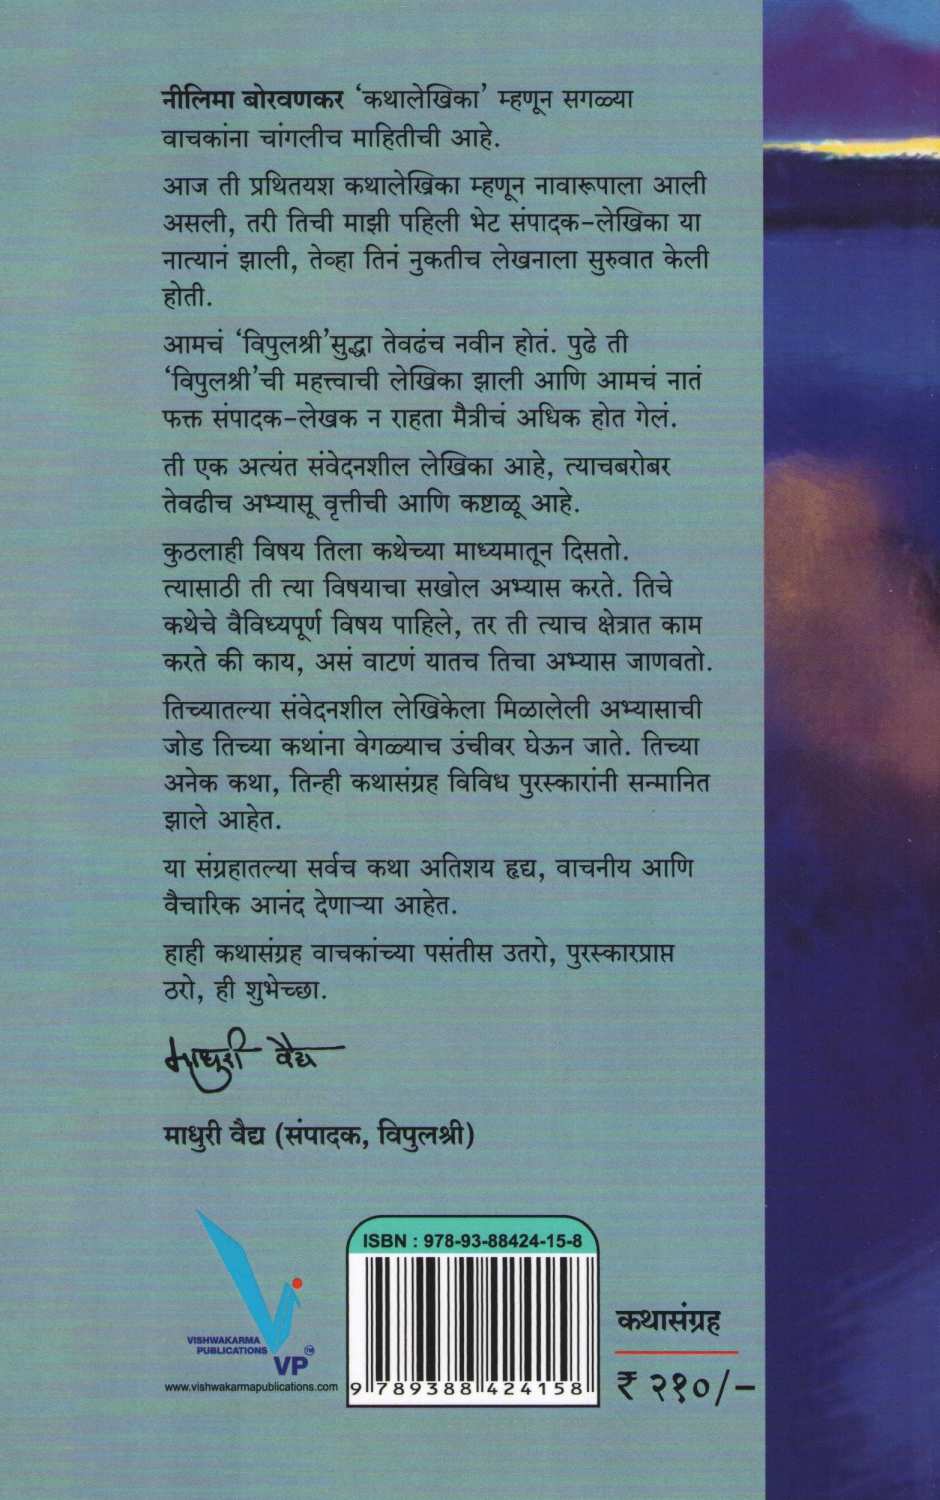 नीलिमा बोरवणकर ‘कथालेखिका’ म्हणून सगळ्या
वाचकांना चांगलीच माहितीची आहे.
आज ती प्रथितयश कथालेखिका म्हणून नावारूपाला आली
असली, तरी तिची माझी पहिली भेट संपादक-लेखिका या
नात्यानं झाली, तेव्हा तिनं नुकतीच लेखनाला सुरुवात केली
होती.
आमचं ‘विपुलश्री’सुद्धा तेवढंच नवीन होतं. पुढे ती
‘विपुलश्री’ची महत्त्वाची लेखिका झाली आणि आमचं नातं
फक्त संपादक-लेखक न राहता मैत्रीचं अधिक होत गेलं.
ती एक अत्यंत संवेदनशील लेखिका आहे, त्याचबरोबर
तेवढीच अभ्यासू वृत्तीची आणि कष्टाळू आहे.
कुठलाही विषय तिला कथेच्या माध्यमातून दिसतो.
त्यासाठी ती त्या विषयाचा सखोल अभ्यास करते. तिचे
कथेचे वैविध्यपूर्ण विषय पाहिले, तर ती त्याच क्षेत्रात काम
करते की काय, असं वाटणं यातच तिचा अभ्यास जाणवतो.
तिच्यातल्या संवेदनशील लेखिकेला मिळालेली अभ्यासाची
जोड तिच्या कथांना वेगळ्याच उंचीवर घेऊन जाते. तिच्या
अनेक कथा, तिन्ही कथासंग्रह विविध पुरस्कारांनी सन्मानित
झाले आहेत.
या संग्रहातल्या सर्वच कथा अतिशय हृद्य, वाचनीय आणि
वैचारिक आनंद देणाऱ्या आहेत.
हाही कथासंग्रह वाचकांच्या पसंतीस उतरो, पुरस्कारप्राप्त
ठरो, ही शुभेच्छा.
माधुरी वैद्य
माधुरी वैद्य (संपादक, विपुलश्री)
ISBN : 978-93-88424-15-8
VISHWAKARMA
PUBLICATIONS
VP
TM
www.vishwakarmapublications.com
9 789388 424158
कथासंग्रह
₹ २१०/-